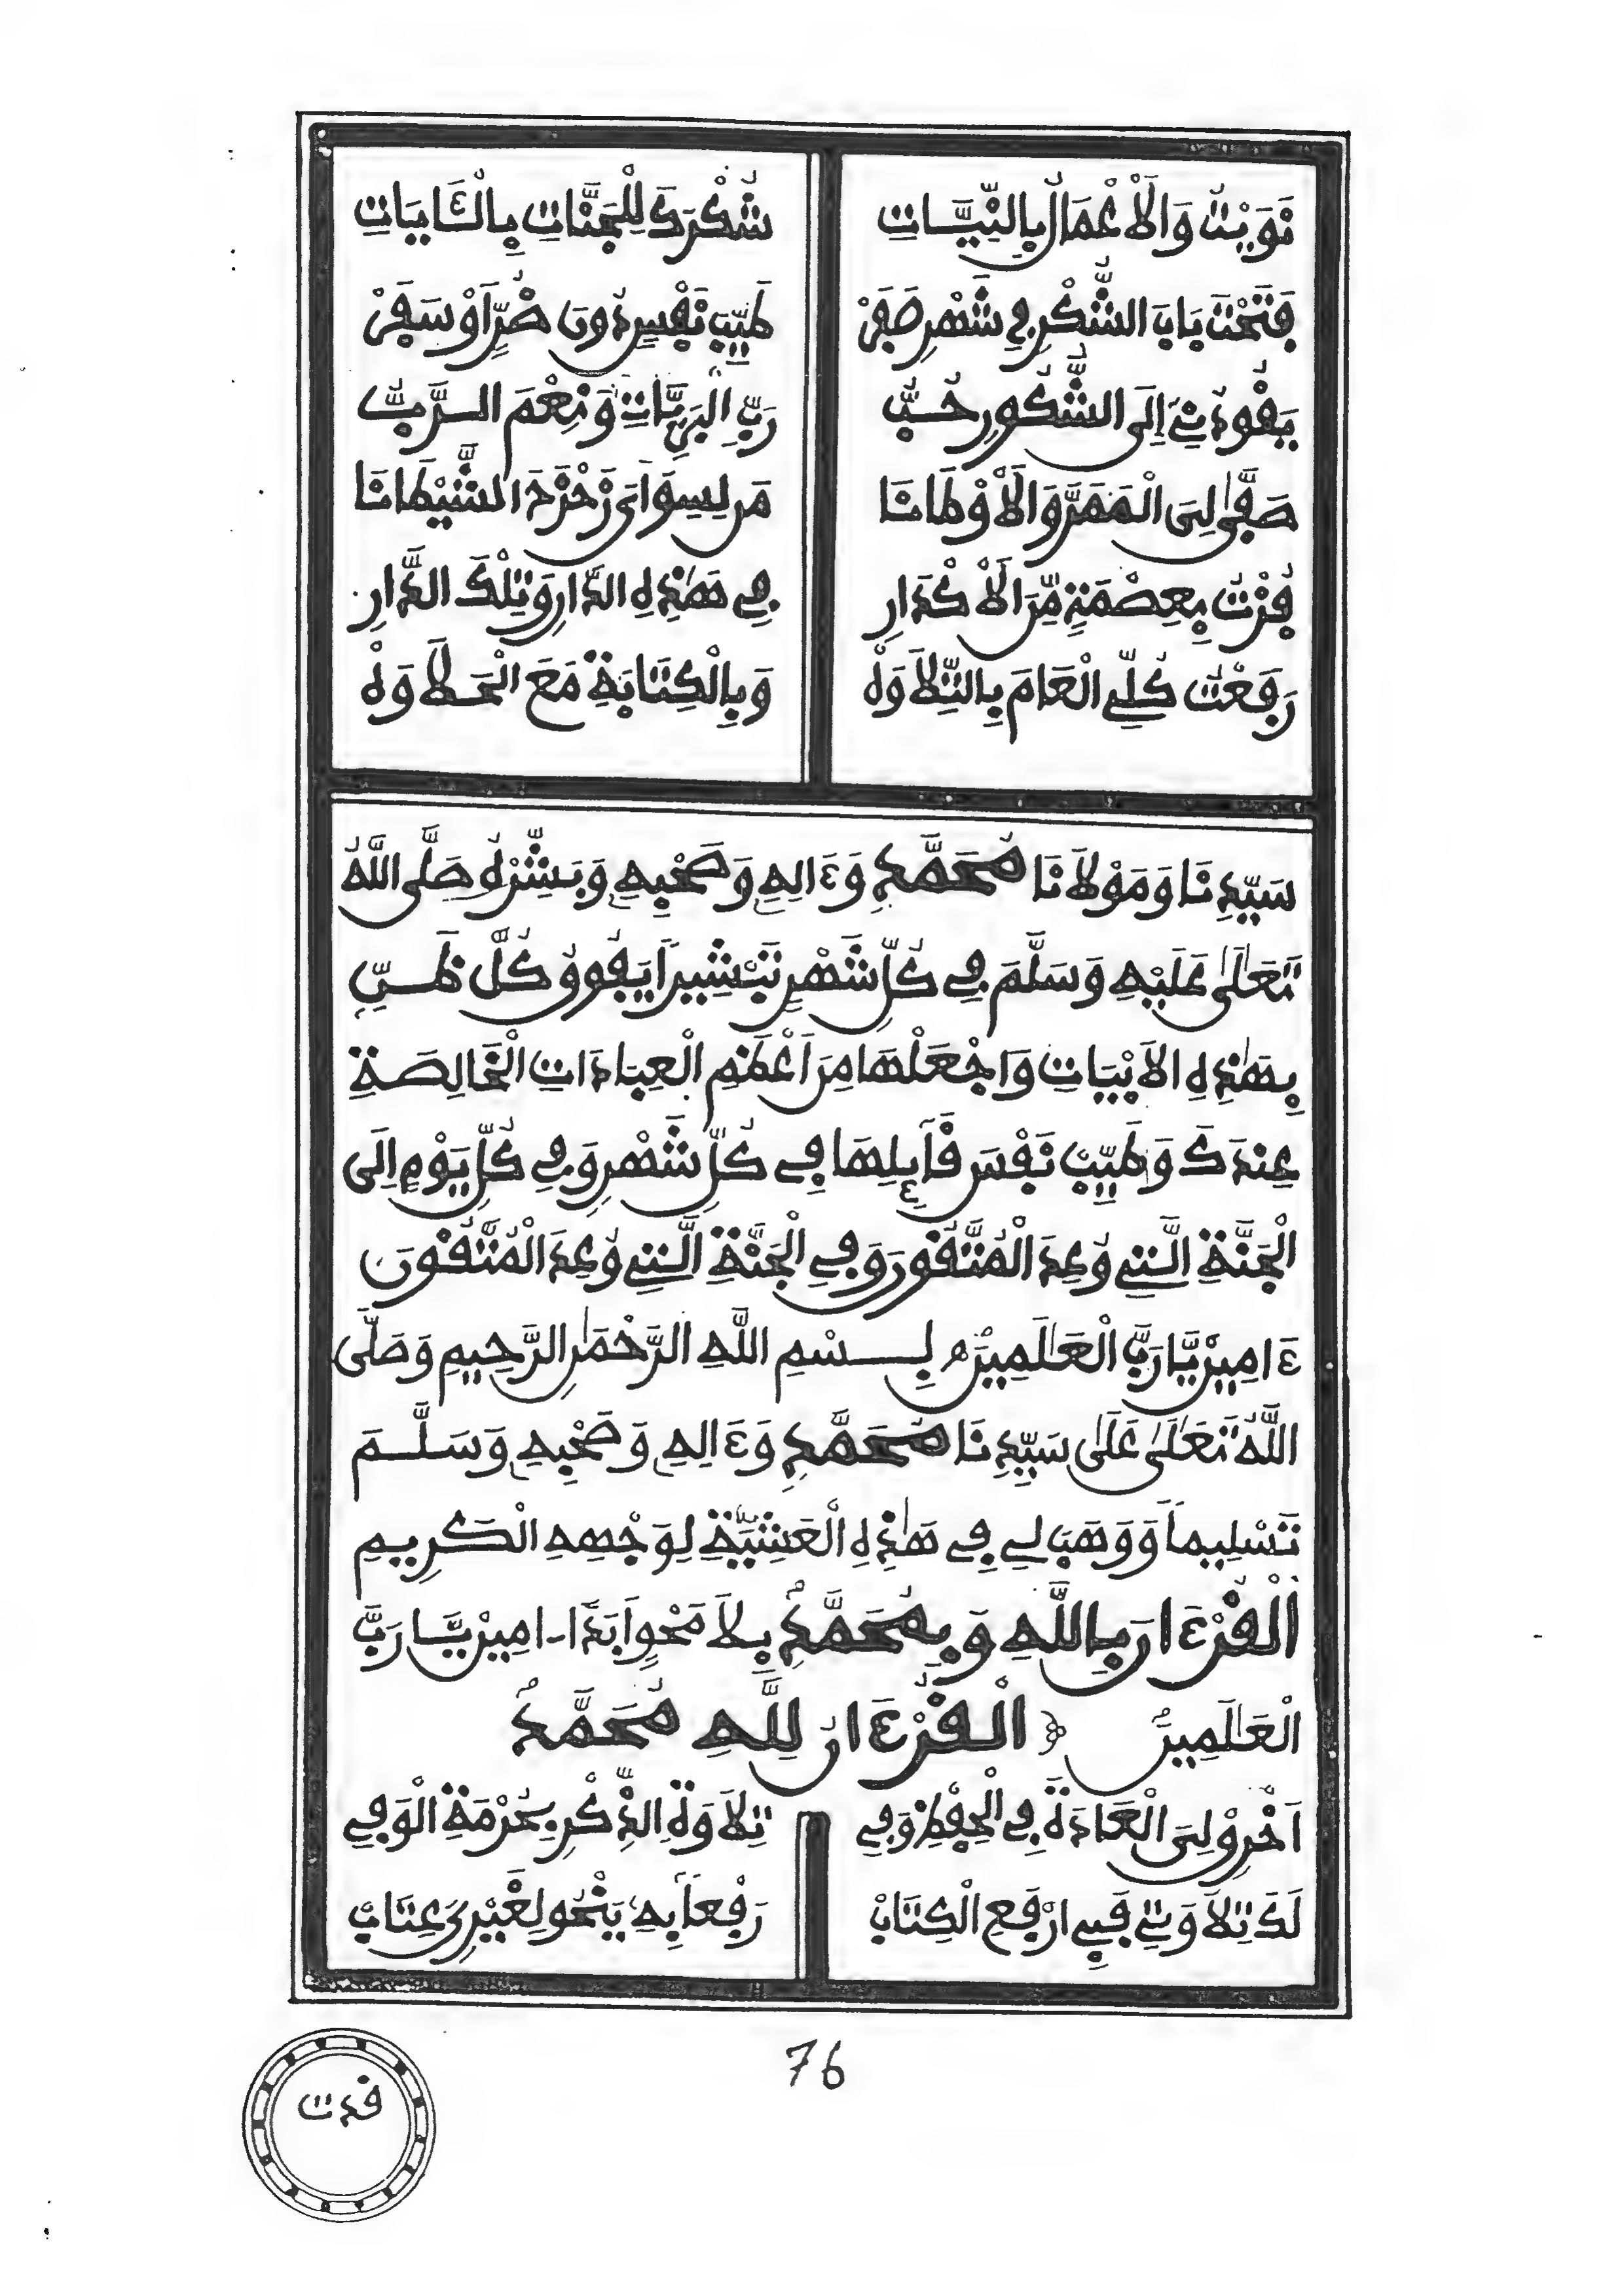 نَوَيْتُ وَالْأَعْمَالُ بِالنِّيَّاتِ شُكْرَكَ لِلْجَنَّاتِ بِالْـَٔابِيَاتِ
فَتَحْتَ بَابَ الشُّكْرِ فِي شَهْرِ صَفَرْ طَيِّبَ نَفْسٍ دُونَ ضُرٍّ أَوْ سَفَرْ
يَقُودُنِي إِلَى الشَّكُورِ حُبُّ رَبِّ الْبَرِيَّاتِ وَنِعْمَ الرَّبُّ
صَفَّى لِيَ الْمَمَرَّ وَالْأَوْطَانَا مَن لِسِوَايَ زَحْزَحَ الشَّيْطَانَا
فُزْتُ بِعِصْمَةٍ مِّنَ الْأَكْدَارِ فِي هَٰذِهِ الدَّارِ وَتِلْكَ الدَّارِ
رَفَعْتُ كُلِّي الْعَامَ بِالتِّلَاوَهْ وَبِالْكِتَابَةِ مَعَ الْحَلَاوَهْ
سَيِّدِنَا وَمَوْلَانَا مُحَمَّدٍ وَءَالِهِ وَصَحْبِهِ وَبَشِّرْهُ صَلَّى اللَّهُ
تَعَالَىٰ عَلَيْهِ وَسَلَّمَ فِي كُلِّ شَهْرٍ تَبْشِيراً يَفُوقُ كُلَّ ظَنٍّ
بِهَٰذِهِ الْأَبْيَاتِ وَاجْعَلْهَا مِنَ أَعْظَمِ الْعِبَادَاتِ الْخَالِصَةِ
عِندَكَ وَطَيِّبْ نَفْسَ قَآئِلِهَا فِي كُلِّ شَهْرٍ وَفِي كُلِّ يَوْمٍ إِلَى
الْجَنَّةِ الَّتِي وُعِدَ الْمُتَّقُونَ وَفِي الْجَنَّةِ الَّتِي وُعِدَ الْمُتَّقُونَ
ءَامِينَ يَا رَبَّ الْعَالَمِينَ بِسْمِ اللَّهِ الرَّحْمَٰنِ الرَّحِيمِ وَصَلَّى
اللَّهُ تَعَالَىٰ عَلَىٰ سَيِّدِنَا مُحَمَّدٍ وَءَالِهِ وَصَحْبِهِ وَسَلَّمَ
تَسْلِيماً وَوَهَبَ لِي فِي هَٰذِهِ الْعَشِيَّةِ لِوَجْهِهِ الْكَرِيمِ
الْقُرْءَانَ بِاللَّهِ وَبِمُحَمَّدٍ بِلَا مَحْوٍ أَبَداً ءَامِينَ يَا رَبَّ
الْعَالَمِينَ الْقُرْءَانُ لِلَّهِ مُحَمَّدُ
أَخْرِقْ لِيَ الْعَادَةَ فِي الْحِفْظِ وَفِي تِلَاوَةِ الذِّكْرِ بِحُرْمَةِ الْوَفِي
لَكَ تِلَاوَتِي فَبِي ارْفَعِ الْكِتَابْ رَفْعاً بِهِ يَنْحُو لِغَيْرِيَ عِتَابْ
76
قدت